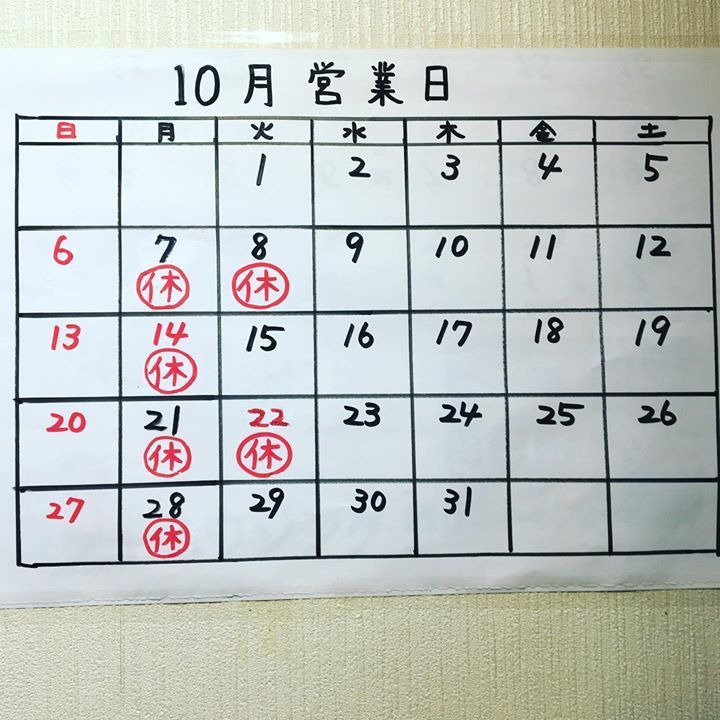 10月営業日
日 月 火 水 木 金 土
1 2 3 4 5
6 7 8 9 10 11 12
休 休
13 14 15 16 17 18 19
休
20 21 22 23 24 25 26
休 休
27 28 29 30 31
休